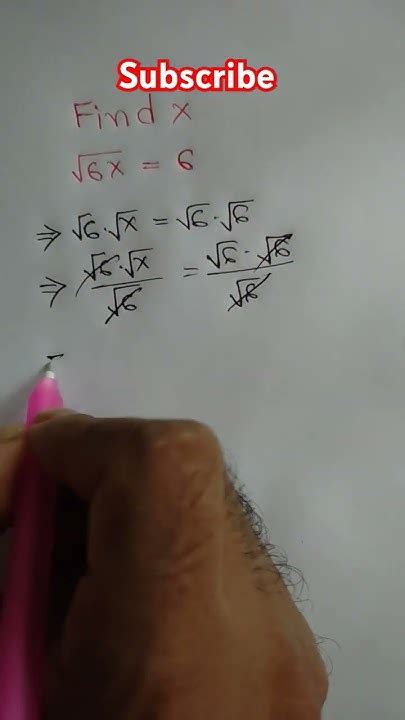 Subscribe
Find x
√6x = 6
⇒ √6·√x = √6·√6
⇒ √6·√x/√6 = √6·√6/√6